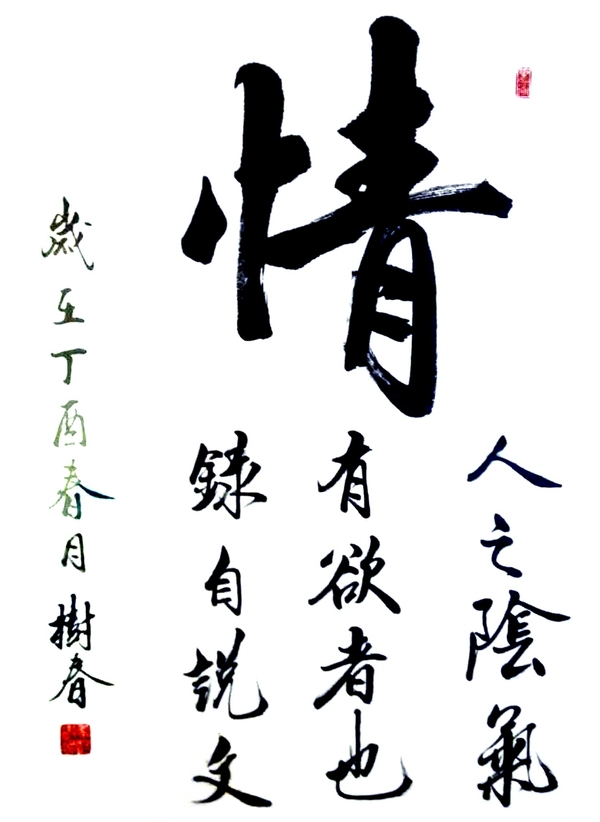 情
人之陰氣
有欲者也
錄自説文
歲在丁酉春月樹春